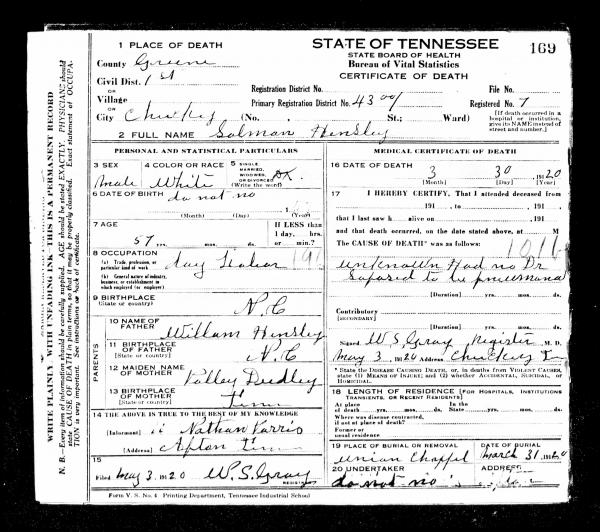 169
1 PLACE OF DEATH
County Greene
Civil Dist. 1 st
OR
Village
OR
City Chuckey (No. St.; Ward)
2 FULL NAME Solman Hensley
STATE OF TENNESSEE
STATE BOARD OF HEALTH
Bureau of Vital Statistics
CERTIFICATE OF DEATH
Registration District No. File No.
Primary Registration District No. 4309 Registered No. 7
[If death occurred in a hospital or institution, give its NAME instead of street and number.]
WRITE PLAINLY, WITH UNFADING INK—THIS IS A PERMANENT RECORD
N. B.—Every item of information should be carefully supplied. AGE should be stated EXACTLY. PHYSICIANS should state CAUSE OF DEATH in plain terms, so that it may be properly classified. Exact statement of OCCUPATION is very important. See instructions on back of certificate.
PERSONAL AND STATISTICAL PARTICULARS
3 SEX
male
4 COLOR OR RACE
White
5 SINGLE, MARRIED, WIDOWED, OR DIVORCED (Write the word) DK.
6 DATE OF BIRTH do not no
(Month) (Day) (Year)
7 AGE
57 yrs. mos. ds.
If LESS than 1 day, hrs. or min.?
8 OCCUPATION
(a) Trade, profession, or particular kind of work
(b) General nature of industry, business, or establishment in which employed (or employer)
9 BIRTHPLACE
(State or country) N.C
PARENTS
10 NAME OF FATHER William Hensley
11 BIRTHPLACE OF FATHER
(State or country) N.C
12 MAIDEN NAME OF MOTHER
13 BIRTHPLACE OF MOTHER
(State or country) Tinn
14 THE ABOVE IS TRUE TO THE BEST OF MY KNOWLEDGE
(Informant) Nathan
(Address) Afton Tinn
15
Filed may 3, 1920 W.S. Gray
REGISTRAR
MEDICAL CERTIFICATE OF DEATH
16 DATE OF DEATH
3 30 1920
(Month) (Day) (Year)
17 I HEREBY CERTIFY, That I attended deceased from
, 191 , to , 191 ,
that I last saw h alive on , 191
and that death occurred, on the date stated above, at M
The CAUSE OF DEATH* was as follows:
unknown Had no Dr
Suposed to be pneumona
(Duration) yrs. mos. ds.
Contributory
(SECONDARY)
(Duration) yrs. mos. ds.
Signed W S Gray Register M. D.
may 3 1920 Address Chuckey Tn
* State the DISEASE CAUSING DEATH, or, in deaths from VIOLENT CAUSES, state (1) MEANS OF INJURY; and (2) whether ACCIDENTAL, SUICIDAL, or HOMICIDAL.
18 LENGTH OF RESIDENCE (FOR HOSPITALS, INSTITUTIONS TRANSIENTS, OR RECENT RESIDENTS)
At place of death yrs. mos. ds. In the State yrs. mos. ds.
Where was disease contracted, if not at place of death?
Former or usual residence
19 PLACE OF BURIAL OR REMOVAL DATE OF BURIAL
Union Chappel March 31, 1920
20 UNDERTAKER ADDRESS
do not no
Form V. S. No. 4 Printing Department, Tennessee Industrial School